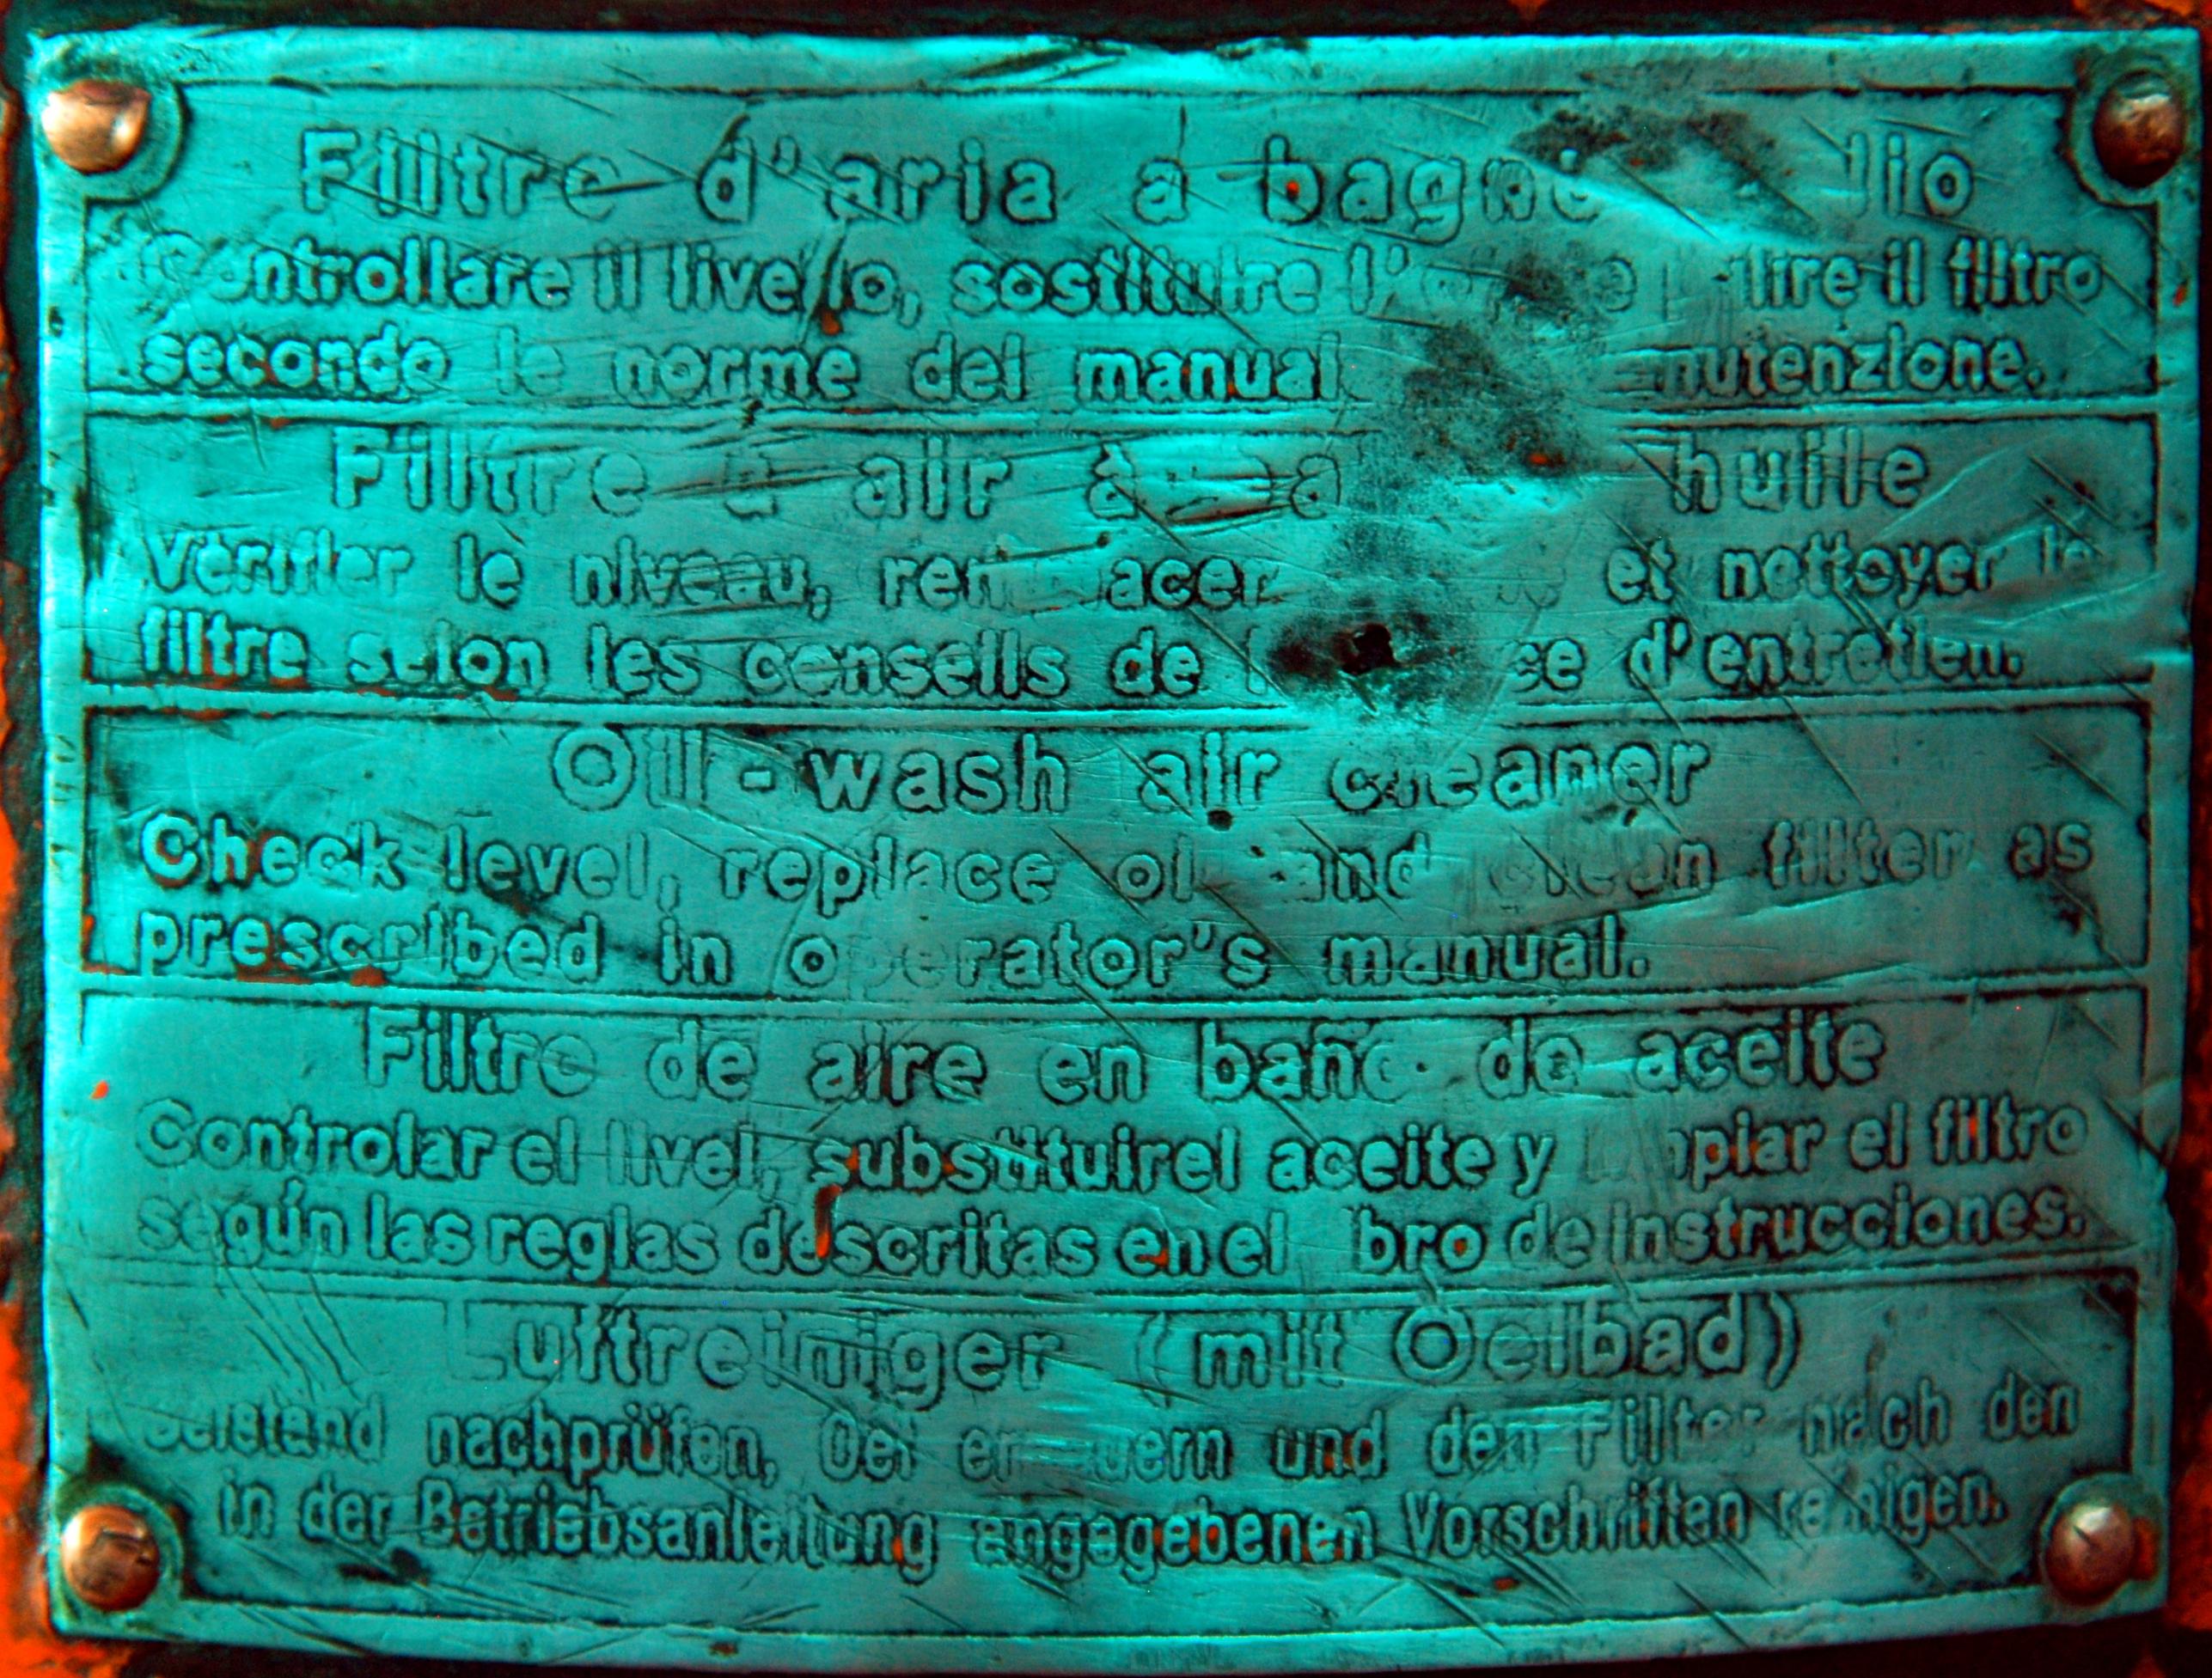 Filtre d'aria a bagno
Controllare il livello, sostituire il filtro
secondo le norme del
Filtre à air à huile
Vérifier le niveau, remplacer et nettoyer le
filtre selon les conseils de d'entretien.
Oil-wash air cleaner
Check level, replace oil and clean filter as
prescribed in operator's manual.
Filtro de aire en baño de aceite
Controlar el livel, substituirel aceite y limpiar el filtro
según las reglas descritas en el de instrucciones.
Luftreiniger (mit Oelbad)
nachprüfen, Oel und den Filter nach den
in der Betriebsanleitung angegebenen Vorschriften reinigen.